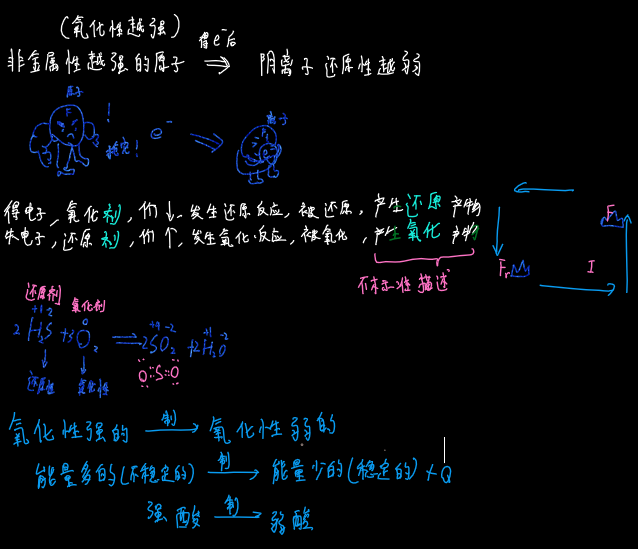 (氧化性越强)
非金属性越强的原子 得e⁻后 ⇒ 阴离子还原性越弱
原子
! 抢完! e⁻ ⇒
离子
得电子,氧化剂,价↓,发生还原反应,被还原,产生还原产物
失电子,还原剂,价↑,发生氧化反应,被氧化,产生氧化产物
不标准描述
F
Fr I
还原剂 氧化剂
+1 -2 0 +4 -2 +1 -2
2H₂S + 3O₂ ⇒ 2SO₂ + 2H₂O
还原性 氧化性
O::S::O
氧化性强的 制→ 氧化性弱的
能量多的(不稳定的) 制→ 能量少的(稳定的) + Q
强酸 制→ 弱酸